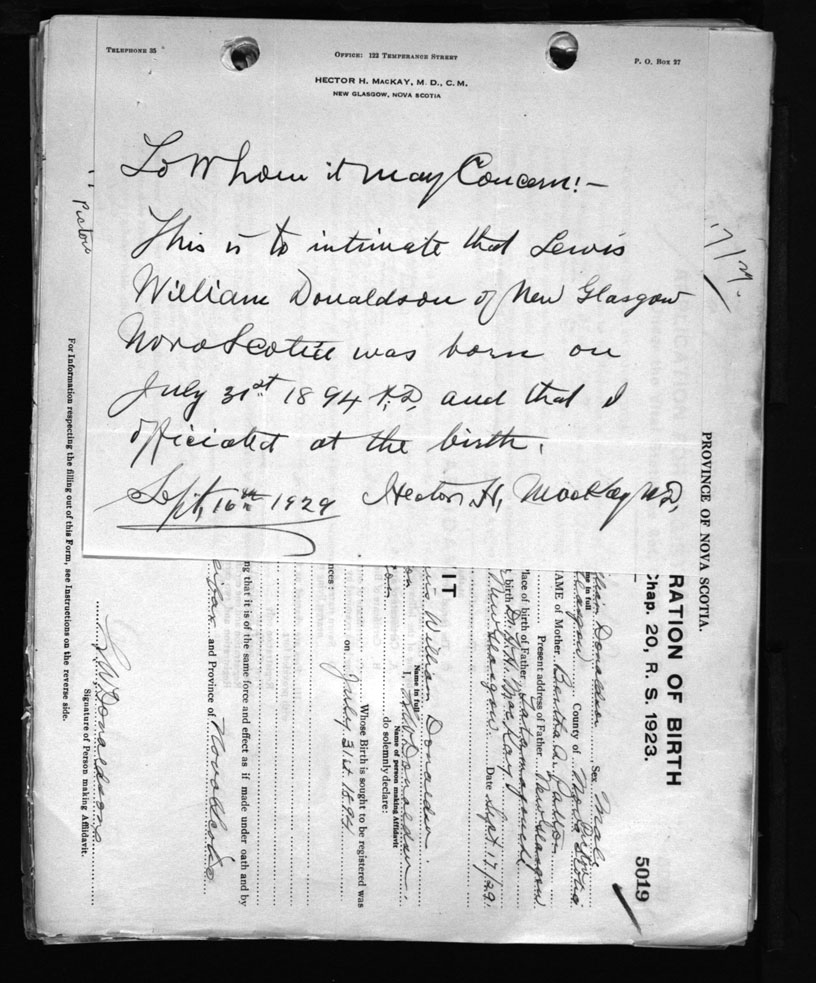 TELEPHONE 35
OFFICE: 122 TEMPERANCE STREET
P. O. BOX 97
HECTOR H. MACKAY, M. D., C. M.
NEW GLASGOW, NOVA SCOTIA
To Whom it may Concern:-
This is to intimate that Lewis
William Donaldson of New Glasgow
Nova Scotia was born on
July 31st 1894 A.D. and that I
officiated at the birth.
Sept, 16th 1929 Hector H, MacKay M.D.
Pictou
17/29.
PROVINCE OF NOVA SCOTIA.
RATION OF BIRTH
Chap. 20, R. S. 1923.
5019
Donaldson Sex Male
County of
NAME of Mother Bertha A.
Present address of Father New Glasgow
Place of birth of Father Tatamagouche
birth Dr. H. H. MacKay
New Glasgow Date Sept. 17/29.
IT
William Donaldson.
Name in full
I, L W Donaldson,
Name of person making Affidavit
do solemnly declare:
Whose Birth is sought to be registered was
on July 31st 1894
nces:
ng that it is of the same force and effect as if made under oath and by
and Province of Nova Scotia
L W Donaldson
Signature of Person making Affidavit.
For Information respecting the filling out of this Form, see Instructions on the reverse side.